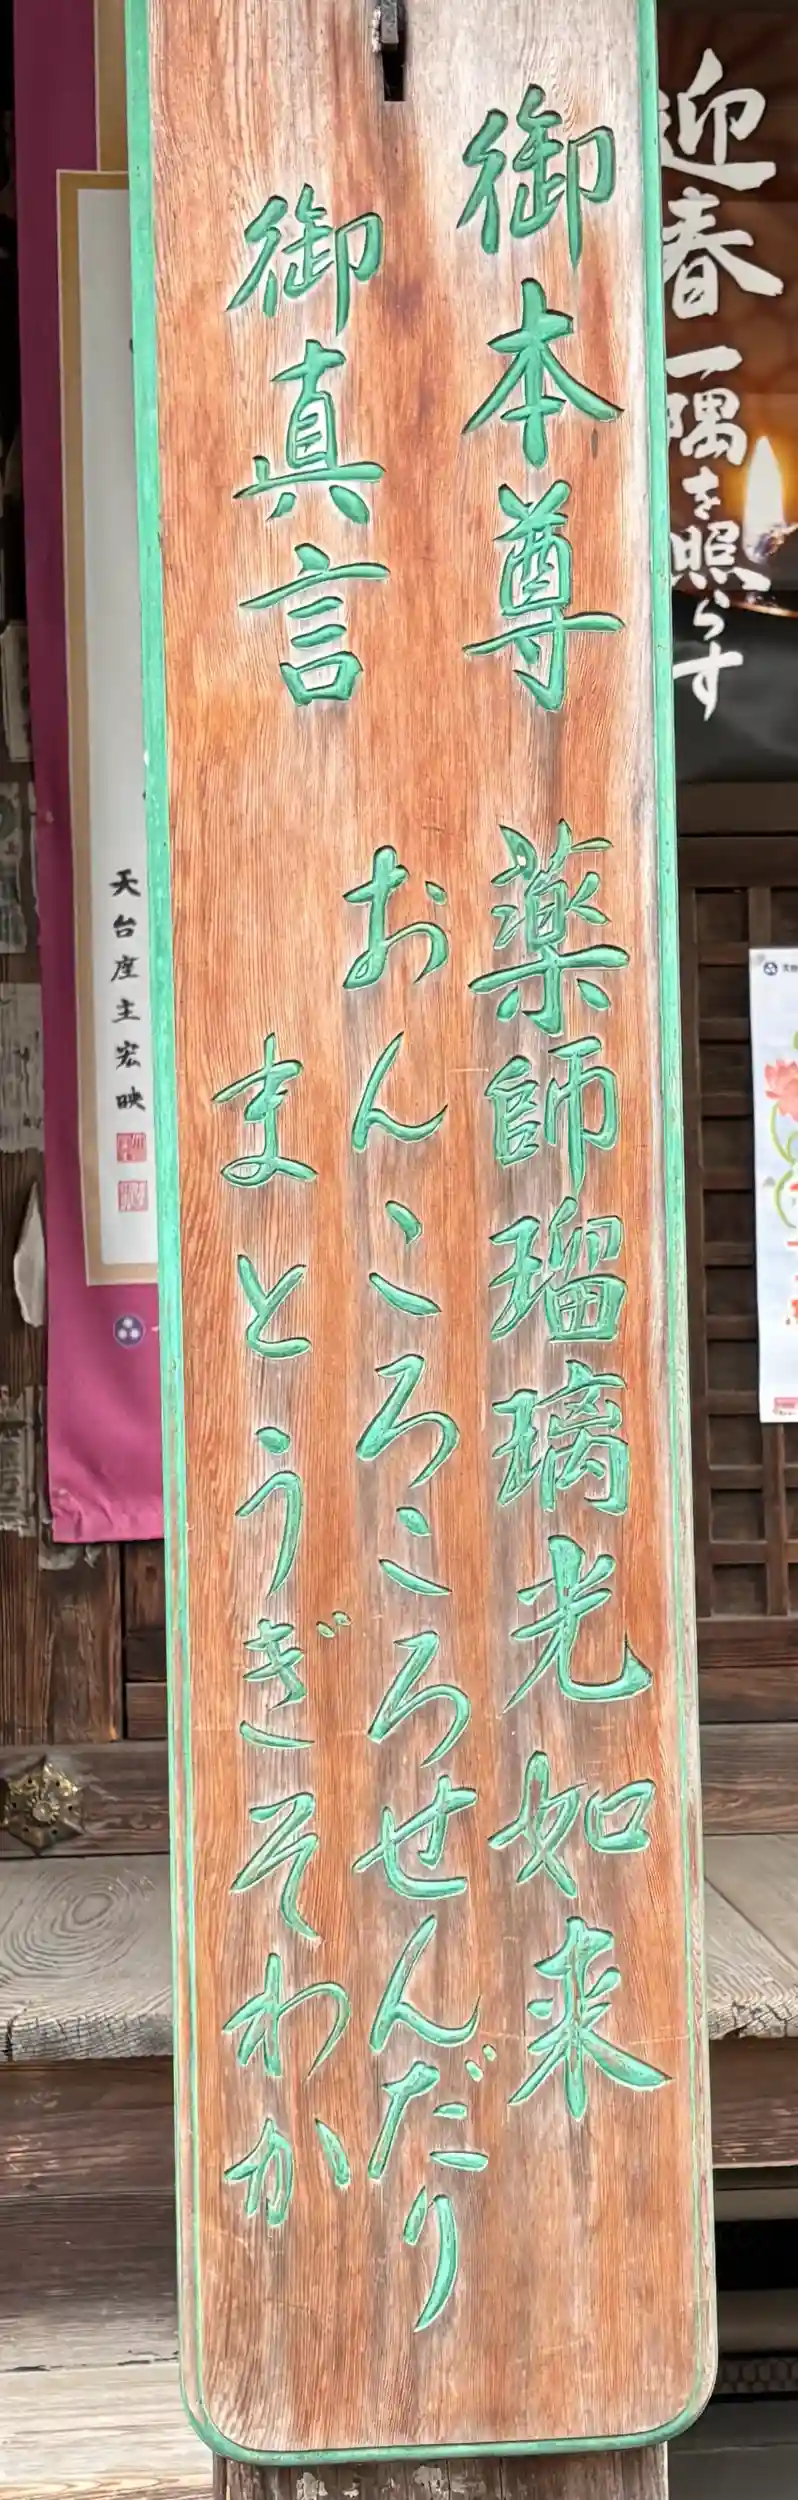 迎春
一隅を照らす
御本尊 薬師瑠璃光如来
御真言
おんころころせんだり
まとうぎそわか
天台座主宏映